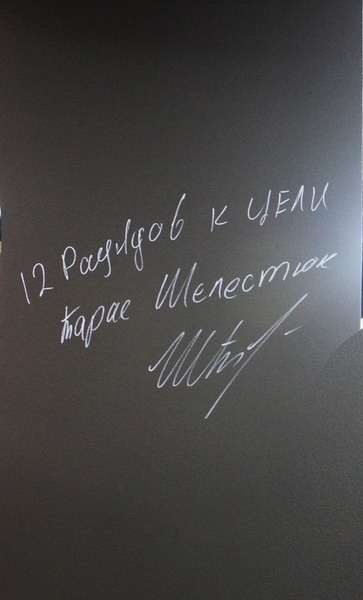 12 Раундов к ЦЕЛИ
Тарас Шелестюк